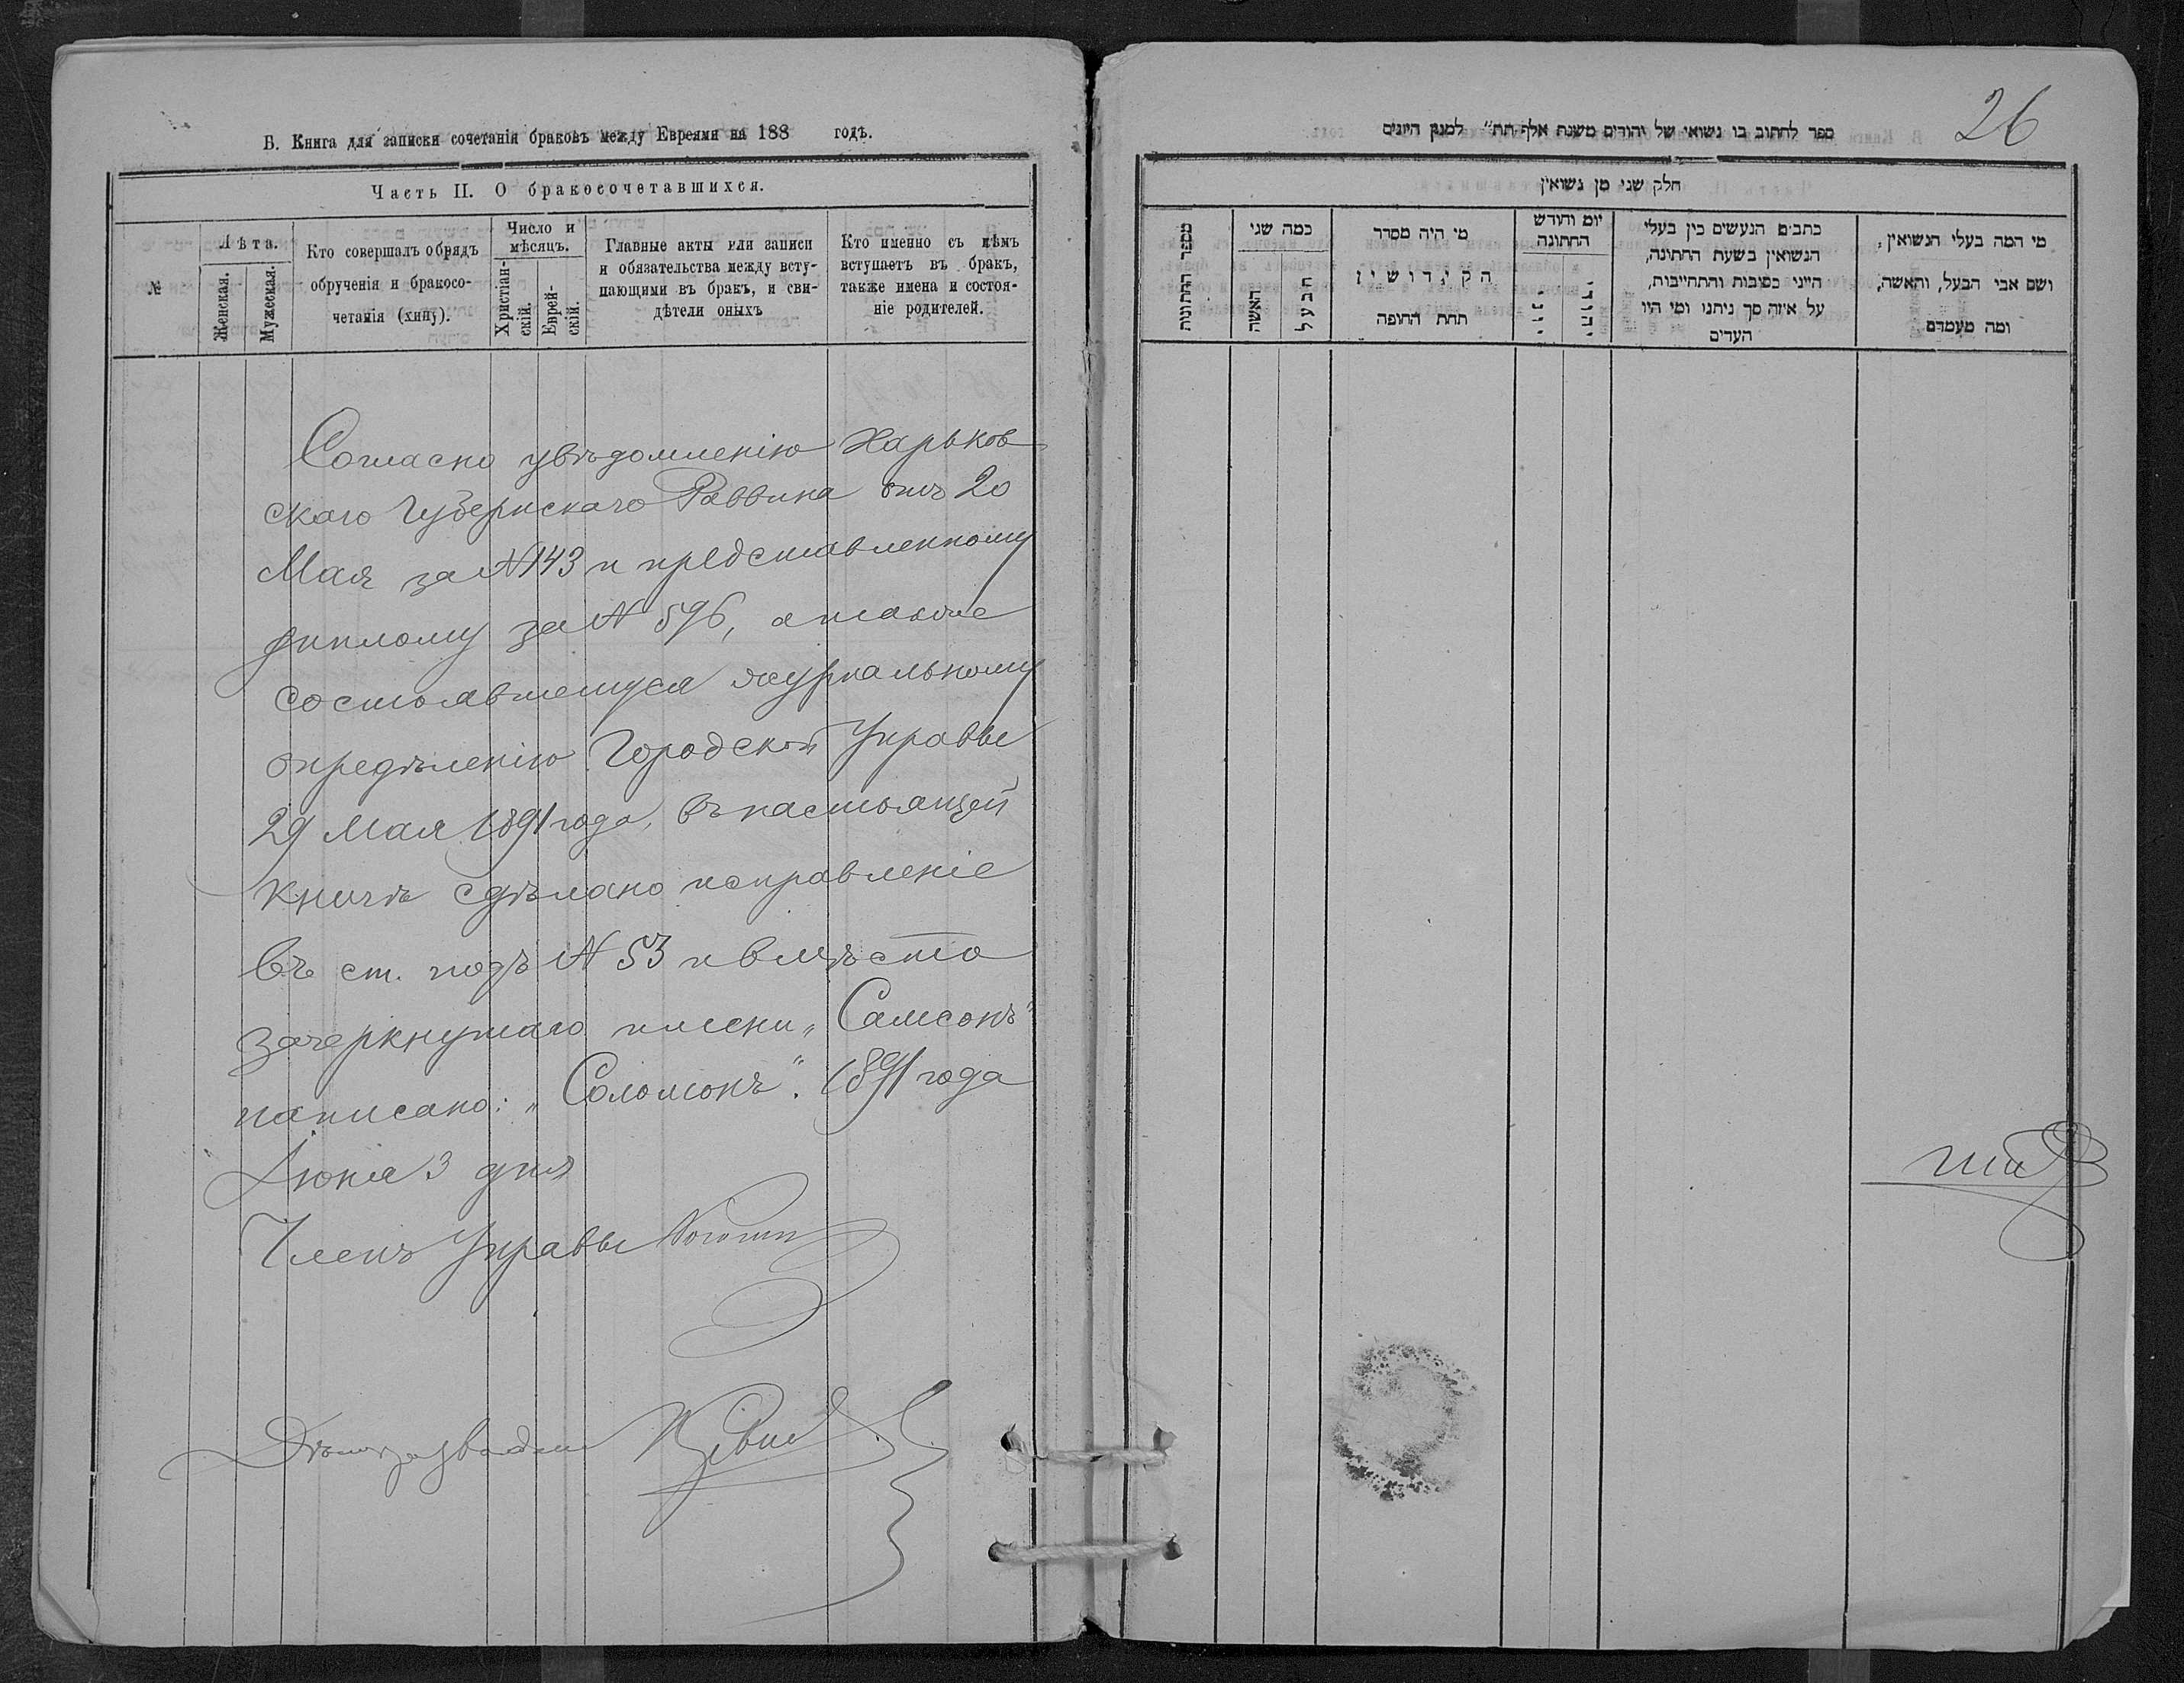 Б. Книга для записки сочетанія браковъ между Евреями на 188 годъ.
Часть II. О бракосочетавшихся.
№
Лѣта.
Женская.
Мужеская.
Кто совершалъ обрядъ
обрученія и бракосо-
четанія (хипу).
Число и
мѣсяцъ.
Христіан-
скій.
Еврей-
скій.
Главные акты или записи
и обязательства между всту-
пающими въ бракъ, и сви-
дѣтели оныхъ
Кто именно съ кѣмъ
вступаетъ въ бракъ,
также имена и состоя-
ніе родителей.
Согласно увѣдомленію Харьков
скаго Губернскаго Раввина отъ 20
Мая за № 143 и представленному
диплому за № 596, а также
состоявшемуся журнальному
опредѣленію Городской Управы
29 Мая 1891 года, въ настоящей
книгѣ сдѣлано исправленіе
въ ст. подъ № 53 и вмѣсто
зачеркнутаго имени „Самсонъ"
написано: „Соломонъ". 1891 года
Іюня 3 дня
Членъ Управы
26
ספר לכתוב בו נשואי של יהודים משנת אלף תת״ למנין היונים
חלק שני מן נשואין
מי המה בעלי הנשואין,
ושם אבי הבעל, והאשה,
ומה מעמדם
כתבים הנעשים בין בעלי
הנשואין בשעת החתונה,
היינו כתובות והתחייבות,
על איזה סך ניתנו ומי היו
העדים
יום וחודש
החתונה
יהודי
יוני
מי היה מסדר
הקידושין
תחת החופה
כמה שני
הבעל
האשה
מספר החתונות